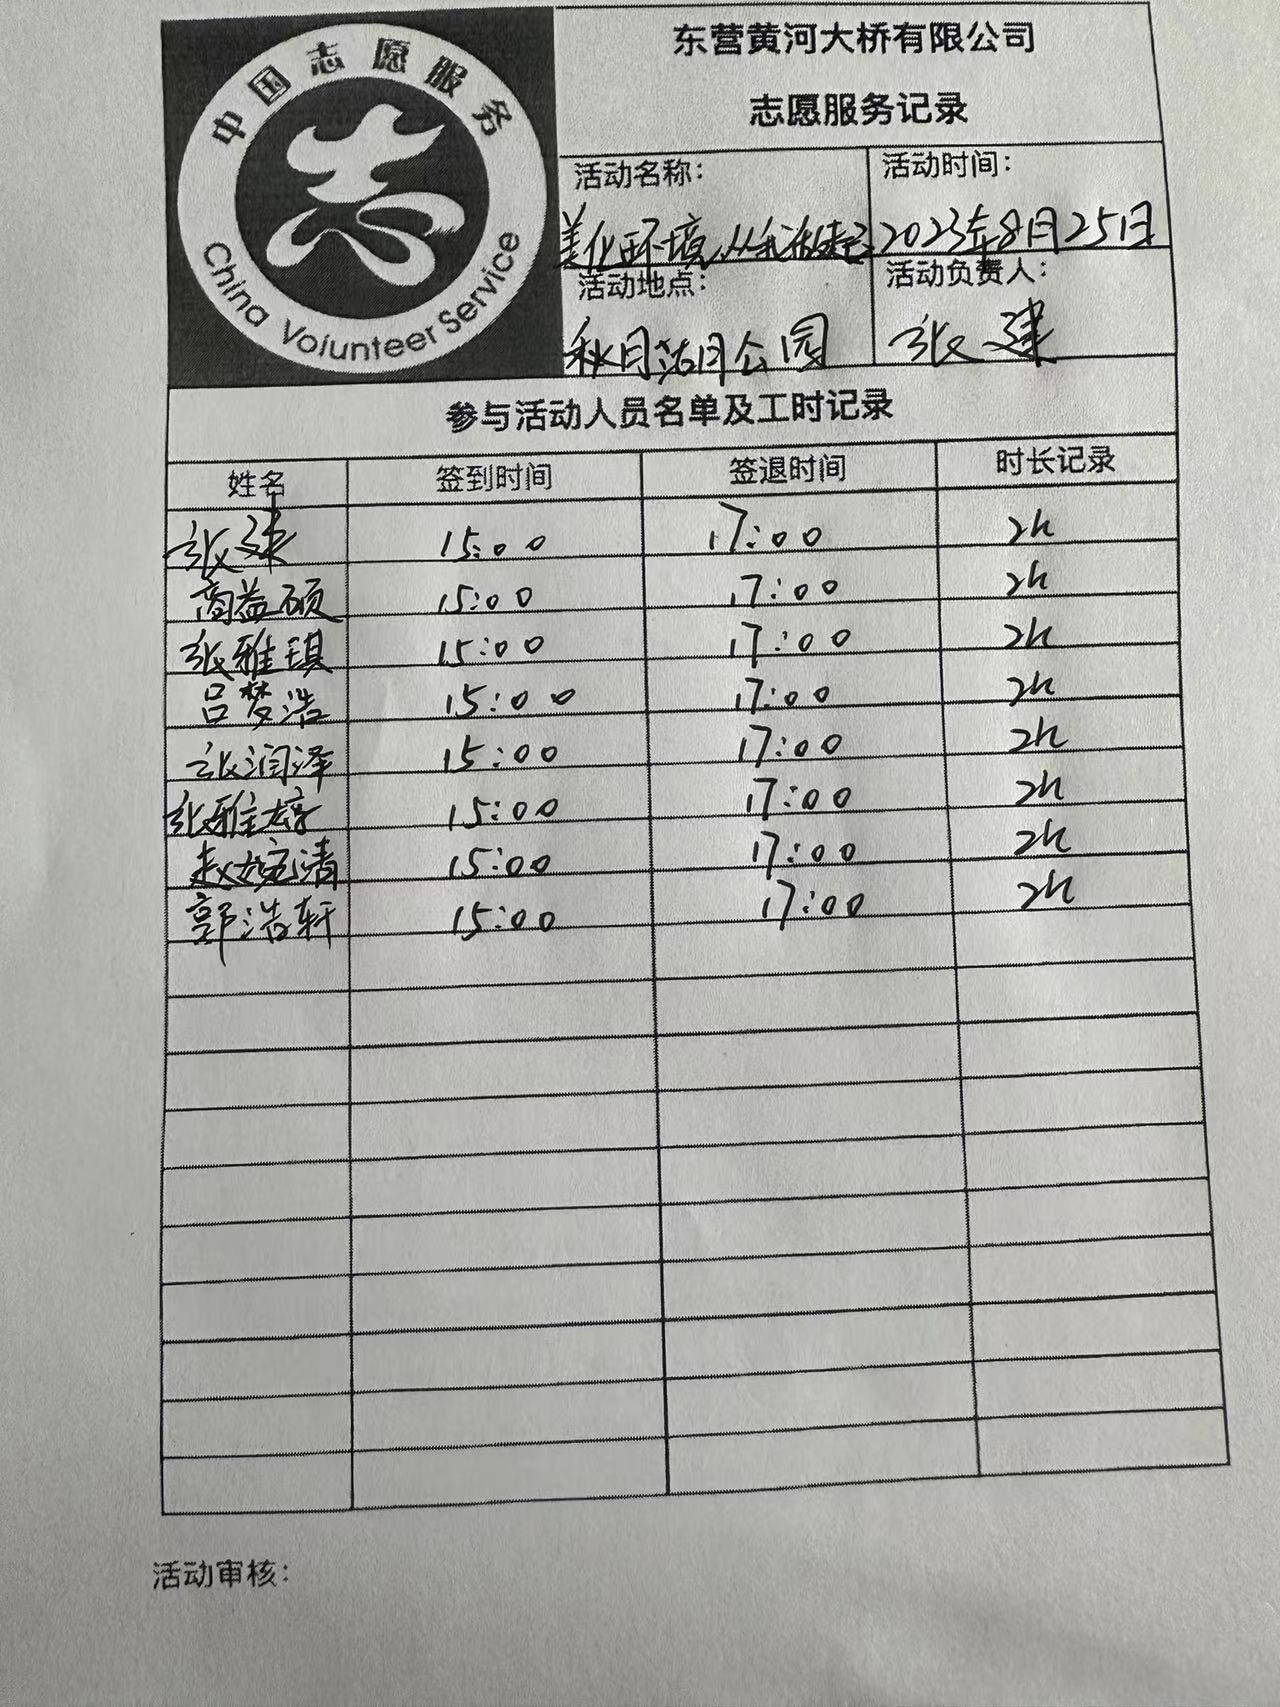 中国志愿服务
China Volunteer Service
东营黄河大桥有限公司
志愿服务记录
活动名称: 活动时间:
美化环境,从我做起 2023年8月25日
活动地点: 活动负责人:
秋月湖公园 张建
参与活动人员名单及工时记录
姓名 签到时间 签退时间 时长记录
张建 15:00 17:00 2h
商益硕 15:00 17:00 2h
张雅琪 15:00 17:00 2h
吕梦浩 15:00 17:00 2h
张润泽 15:00 17:00 2h
张雅婷 15:00 17:00 2h
赵婉清 15:00 17:00 2h
郭浩轩 15:00 17:00 2h
活动审核: